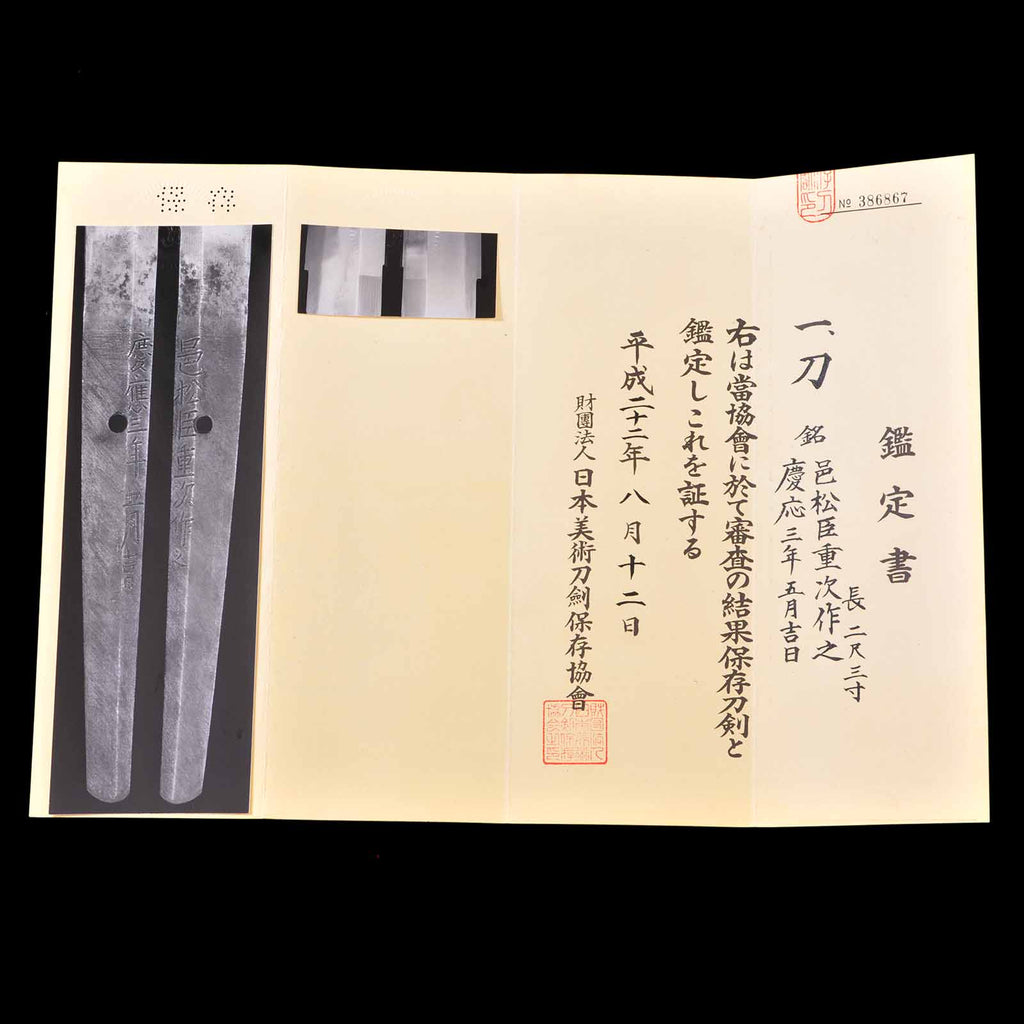 № 386867
鑑定書
一、刀
銘 邑松臣重次作之
慶応三年五月吉日
長 二尺三寸
右は當協會に於て審査の結果保存刀剣と
鑑定しこれを証する
平成二十二年八月十二日
財團法人日本美術刀劍保存協會
保存
邑松臣重次作之
慶應三年五月吉日